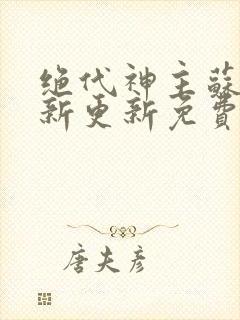 绝代神主蘇
新更新免費
唐夫彦